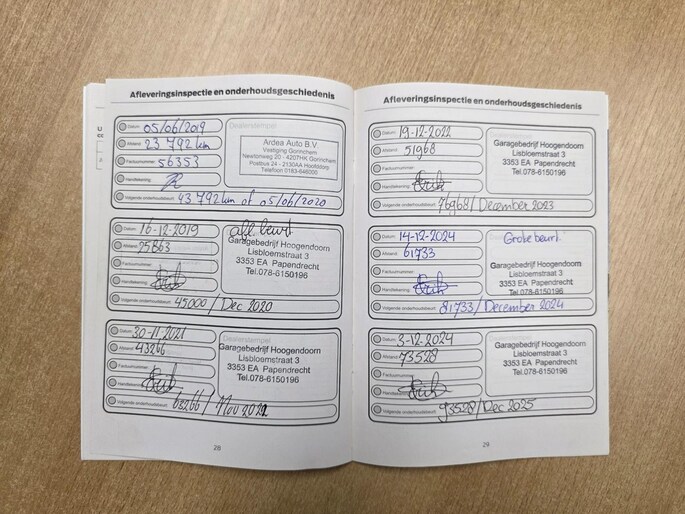 Afleveringsinspectie en onderhoudsgeschiedenis
Datum: 05/06/2019
Afstand: 23 792 km
Factuurnummer: 56353
Handtekening:
Volgende onderhoudsbeurt: 43 792 km of 05/06/2020
Dealerstempel
Ardea Auto B.V.
Vestiging Gorinchem
Newtonweg 20 - 4207HK Gorinchem
Postbus 24 - 2130AA Hoofddorp
Telefoon 0183-646000
Datum: 16-12-2019
Afstand: 25863
Factuurnummer:
Handtekening:
Volgende onderhoudsbeurt: 45000 / Dec 2020
afl beurt
Garagebedrijf Hoogendoorn
Lisbloemstraat 3
3353 EA Papendrecht
Tel.078-6150196
Datum: 30-11-2021
Afstand: 43266
Factuurnummer:
Handtekening:
Volgende onderhoudsbeurt: 63266 / Nov 2022
Dealerstempel
Garagebedrijf Hoogendoorn
Lisbloemstraat 3
3353 EA Papendrecht
Tel.078-6150196
28
Afleveringsinspectie en onderhoudsgeschiedenis
Datum: 19-12-2022
Afstand: 51968
Factuurnummer:
Handtekening:
Volgende onderhoudsbeurt: 76968 / December 2023
Garagebedrijf Hoogendoorn
Lisbloemstraat 3
3353 EA Papendrecht
Tel.078-6150196
Datum: 14-12-2024
Afstand: 61733
Factuurnummer:
Handtekening:
Volgende onderhoudsbeurt: 81733 / December 2024
Grote beurt
Garagebedrijf Hoogendoorn
Lisbloemstraat 3
3353 EA Papendrecht
Tel.078-6150196
Datum: 3-12-2024
Afstand: 73528
Factuurnummer:
Handtekening:
Volgende onderhoudsbeurt: 93528 / Dec 2025
Garagebedrijf Hoogendoorn
Lisbloemstraat 3
3353 EA Papendrecht
Tel.078-6150196
29